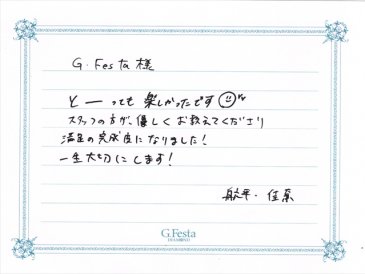 G.Festa様
とーっても 楽しかったです
スタッフの方が、優しくお教えてくださり
満足の完成度になりました！
一生大切にします！
航平・佳奈
G.Festa
DIAMOND